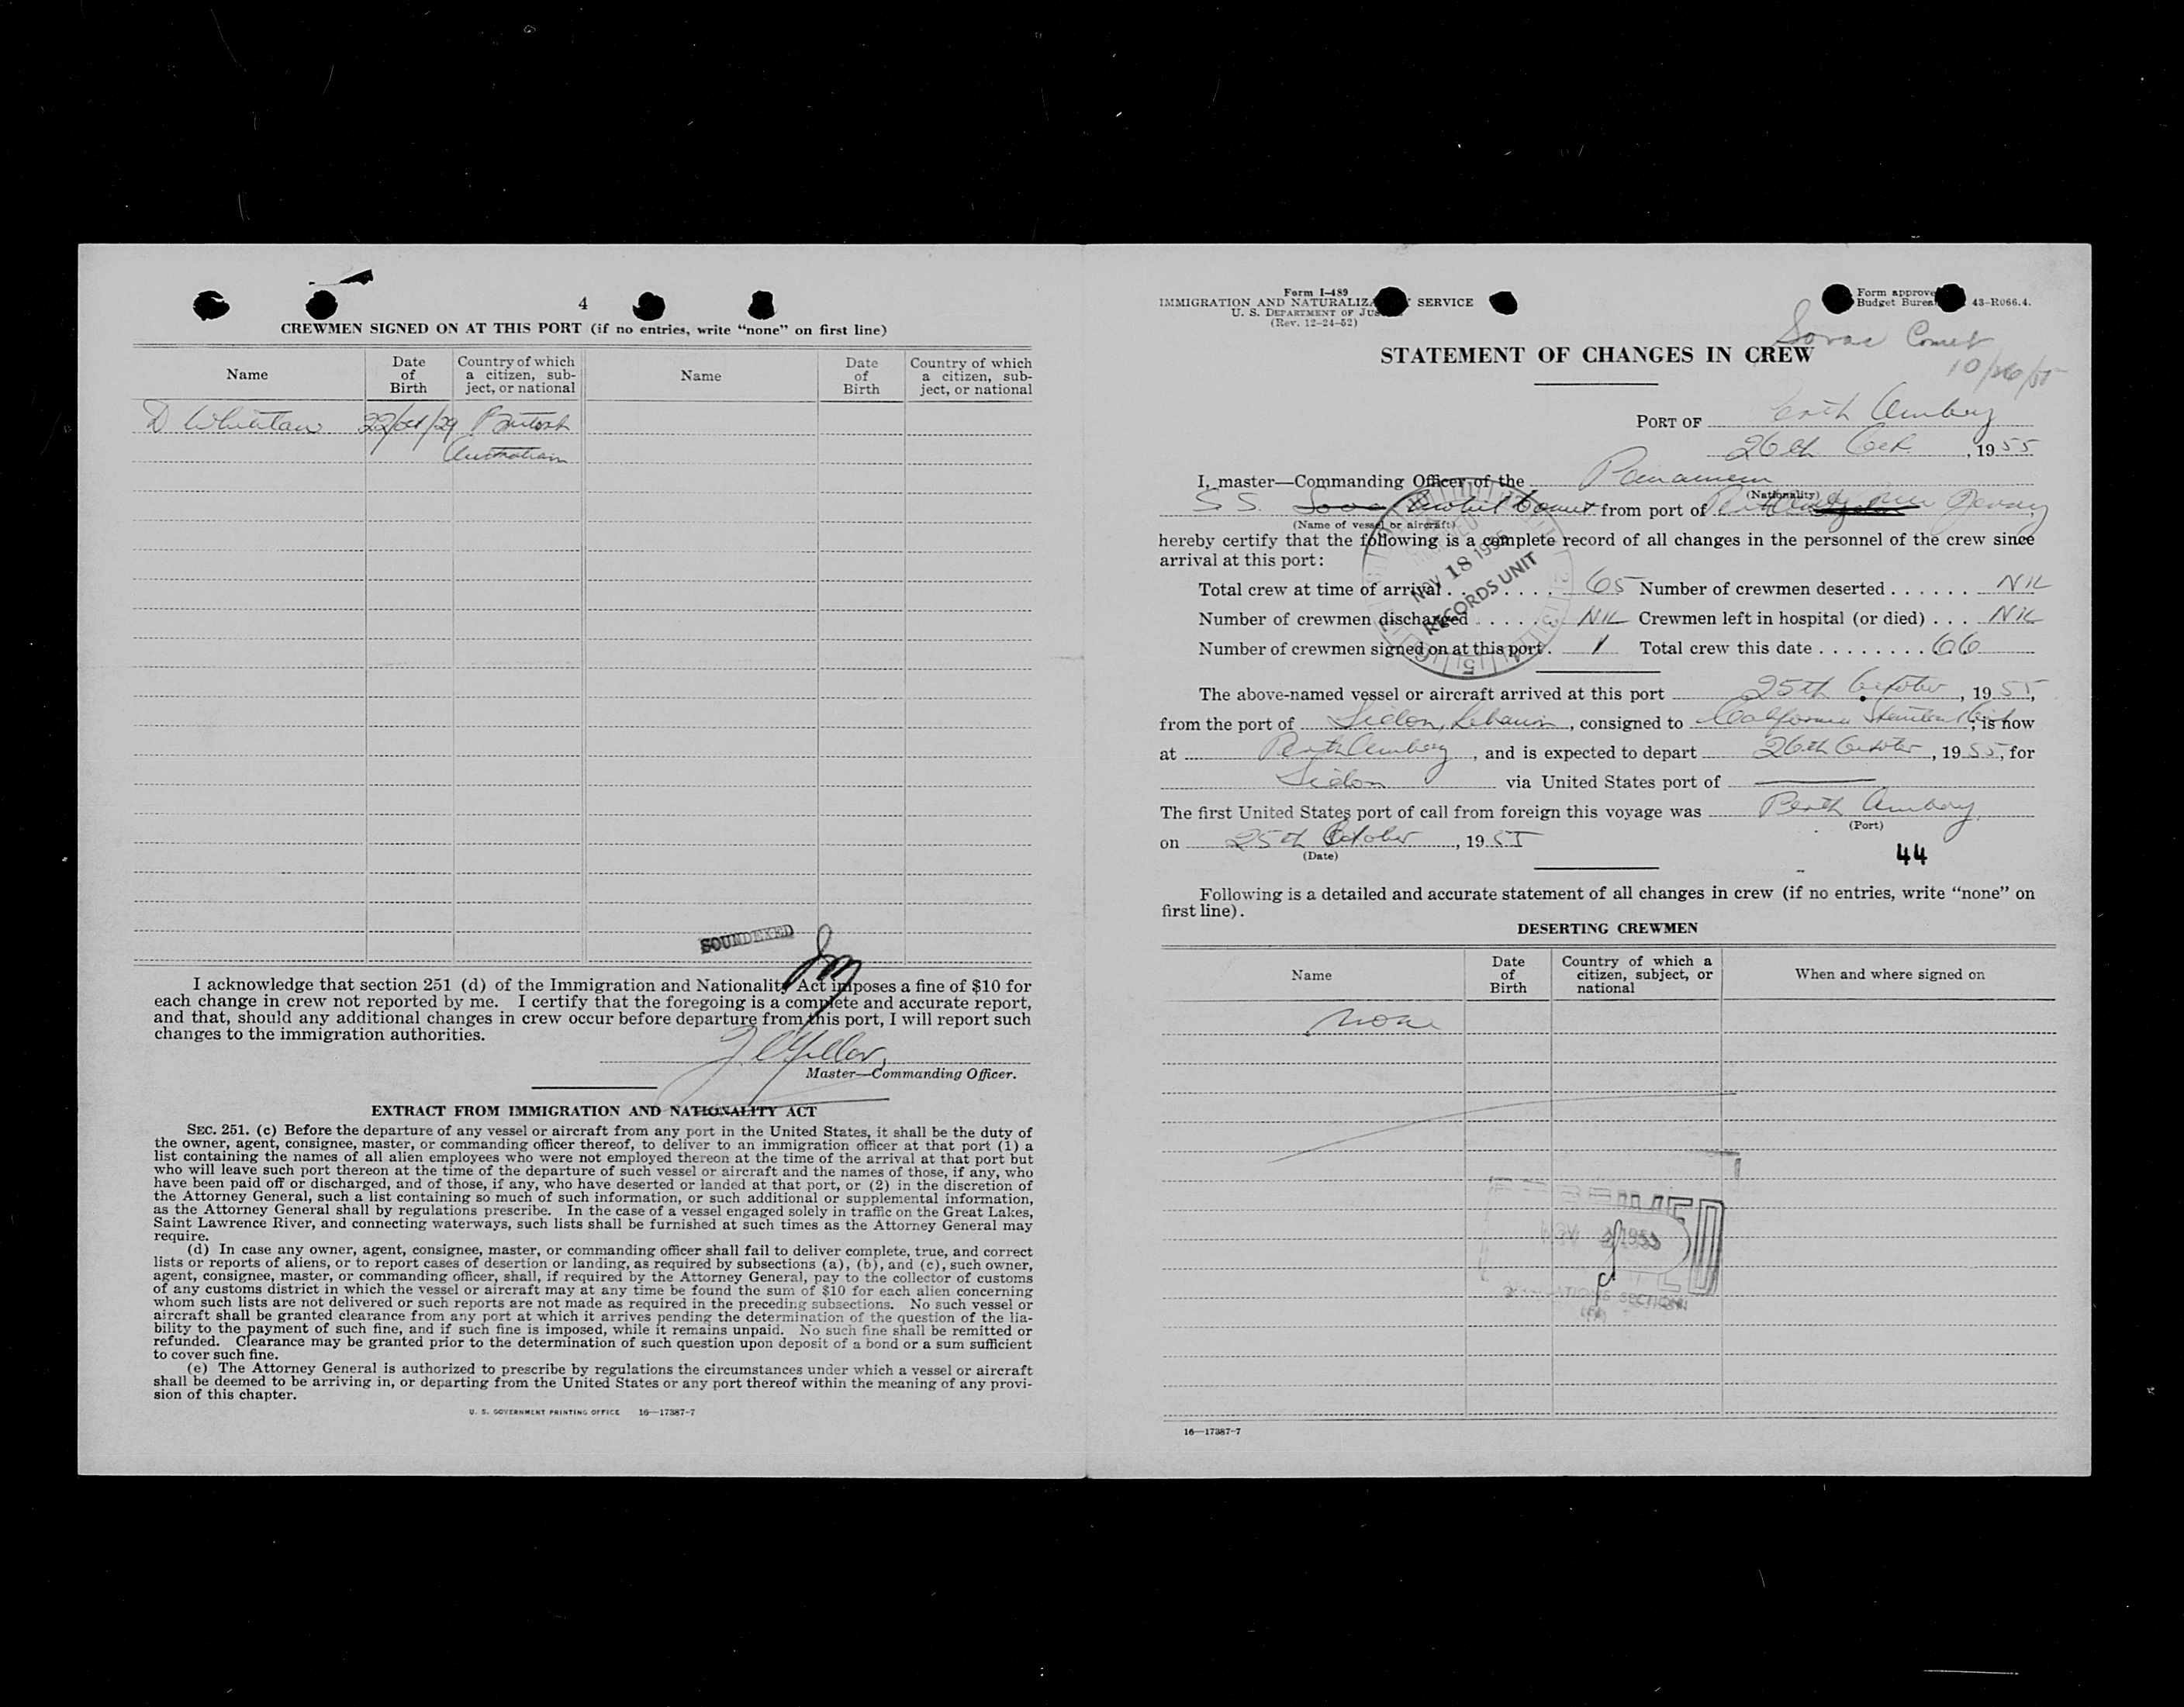 4
CREWMEN SIGNED ON AT THIS PORT (if no entries, write “none” on first line)
Name Date of Birth Country of which a citizen, subject, or national Name Date of Birth Country of which a citizen, subject, or national
D 22/Oct/29 British
Australian
SOUNDEXED
I acknowledge that section 251 (d) of the Immigration and Nationality Act imposes a fine of $10 for
each change in crew not reported by me. I certify that the foregoing is a complete and accurate report,
and that, should any additional changes in crew occur before departure from this port, I will report such
changes to the immigration authorities.
Master—Commanding Officer.
EXTRACT FROM IMMIGRATION AND NATIONALITY ACT
SEC. 251. (c) Before the departure of any vessel or aircraft from any port in the United States, it shall be the duty of
the owner, agent, consignee, master, or commanding officer thereof, to deliver to an immigration officer at that port (1) a
list containing the names of all alien employees who were not employed thereon at the time of the arrival at that port but
who will leave such port thereon at the time of the departure of such vessel or aircraft and the names of those, if any, who
have been paid off or discharged, and of those, if any, who have deserted or landed at that port, or (2) in the discretion of
the Attorney General, such a list containing so much of such information, or such additional or supplemental information,
as the Attorney General shall by regulations prescribe. In the case of a vessel engaged solely in traffic on the Great Lakes,
Saint Lawrence River, and connecting waterways, such lists shall be furnished at such times as the Attorney General may
require.
(d) In case any owner, agent, consignee, master, or commanding officer shall fail to deliver complete, true, and correct
lists or reports of aliens, or to report cases of desertion or landing, as required by subsections (a), (b), and (c), such owner,
agent, consignee, master, or commanding officer, shall, if required by the Attorney General, pay to the collector of customs
of any customs district in which the vessel or aircraft may at any time be found the sum of $10 for each alien concerning
whom such lists are not delivered or such reports are not made as required in the preceding subsections. No such vessel or
aircraft shall be granted clearance from any port at which it arrives pending the determination of the question of the lia-
bility to the payment of such fine, and if such fine is imposed, while it remains unpaid. No such fine shall be remitted or
refunded. Clearance may be granted prior to the determination of such question upon deposit of a bond or a sum sufficient
to cover such fine.
(e) The Attorney General is authorized to prescribe by regulations the circumstances under which a vessel or aircraft
shall be deemed to be arriving in, or departing from the United States or any port thereof within the meaning of any provi-
sion of this chapter.
U. S. GOVERNMENT PRINTING OFFICE 16—17387-7
Form I-489
IMMIGRATION AND SERVICE
U. S. DEPARTMENT OF
(Rev. 12-24-52)
Form
Budget 43-R066.4.
Comet
10/26/55
STATEMENT OF CHANGES IN CREW
PORT OF Perth Amboy
26th Oct, 1955
I, master—Commanding Officer of the
(Nationality)
S S. Comet from port of Jersey
(Name of vessel or aircraft)
hereby certify that the following is a complete record of all changes in the personnel of the crew since
arrival at this port:
Total crew at time of arrival 65 Number of crewmen deserted NIL
Number of crewmen discharged NIL Crewmen left in hospital (or died) NIL
Number of crewmen signed on at this port 1 Total crew this date 66
NOV 18 195
RECORDS UNIT
The above-named vessel or aircraft arrived at this port 25th October, 1955,
from the port of Sidon, Lebanon, consigned to California, is now
at Perth Amboy, and is expected to depart 26th October, 1955, for
Sidon via United States port of
The first United States port of call from foreign this voyage was Perth Amboy
(Port)
on 25th October, 1955
(Date)
44
Following is a detailed and accurate statement of all changes in crew (if no entries, write “none” on
first line).
DESERTING CREWMEN
Name Date of Birth Country of which a citizen, subject, or national When and where signed on
none
NOV 1955
SECTION
16—17387-7